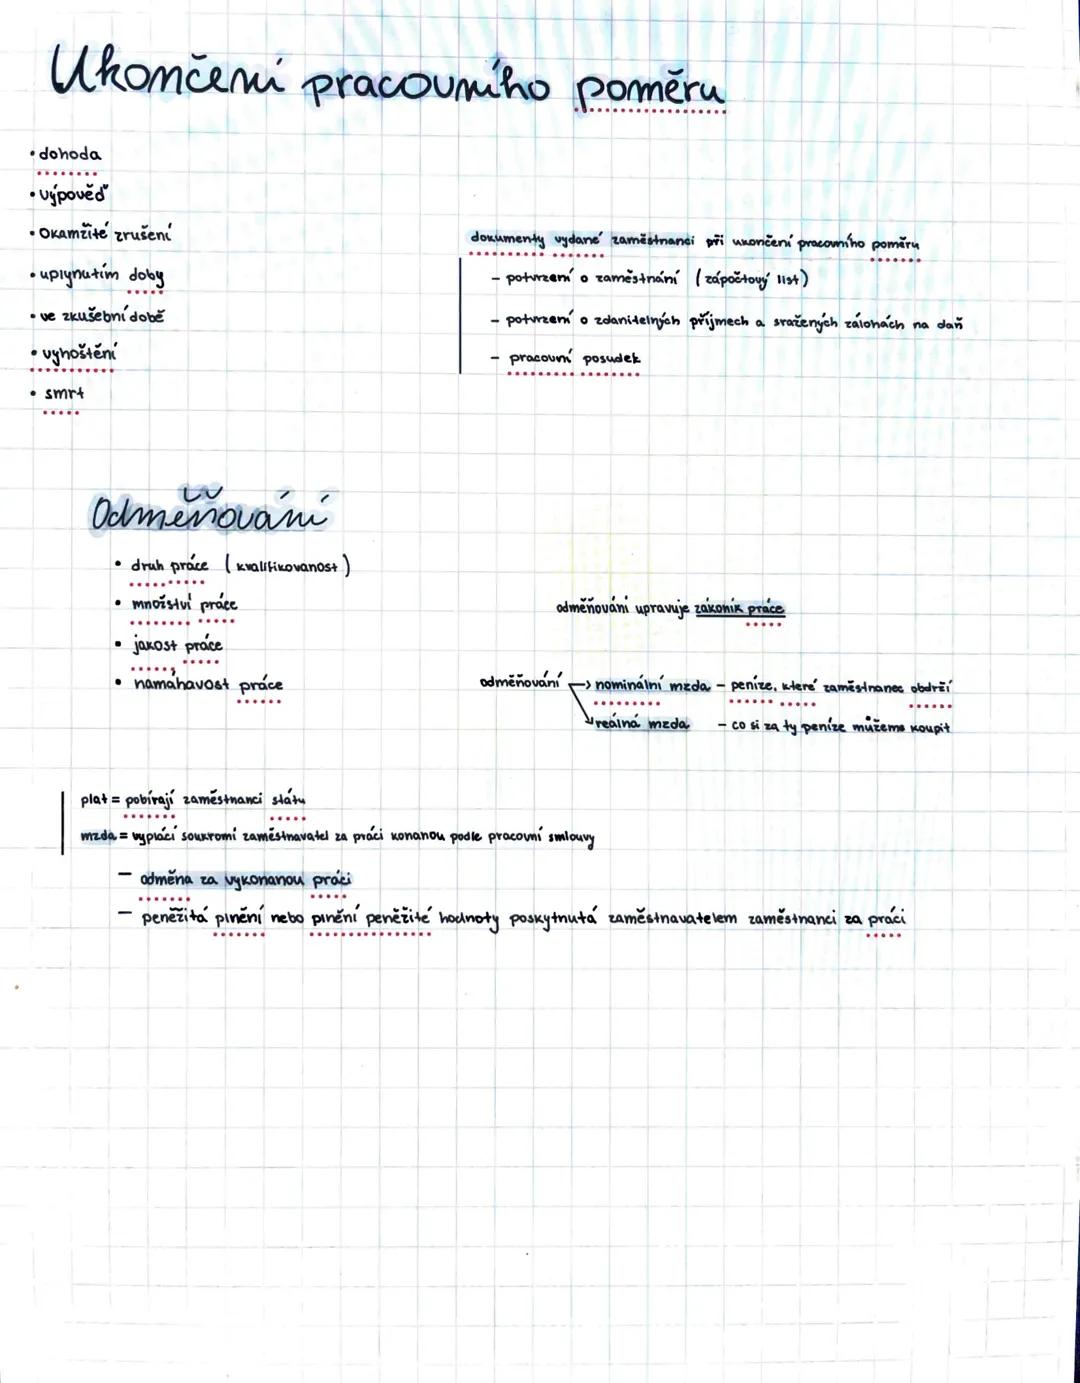 Ukončení pracovního poměru
• dohoda
• výpověď
• okamžité zrušení
• uplynutím doby
• ve zkušební době
• vyhoštění
• smrt
dokumenty vydané zaměstnanci při ukončení pracovního poměru
– potvrzení o zaměstnání (zápočtový list)
– potvrzení o zdanitelných příjmech a sražených zálohách na daň
– pracovní posudek
Odměňování
• druh práce (kvalifikovanost)
• množství práce
• jakost práce
• namáhavost práce
odměňování upravuje zákoník práce
odměňování → nominální mzda – peníze, které zaměstnanec obdrží
↘ reálná mzda – co si za ty peníze můžeme koupit
plat = pobírají zaměstnanci státu
mzda = vyplácí soukromí zaměstnavatel za práci konanou podle pracovní smlouvy
– odměna za vykonanou práci
– peněžitá plnění nebo plnění peněžité hodnoty poskytnutá zaměstnavatelem zaměstnanci za práci